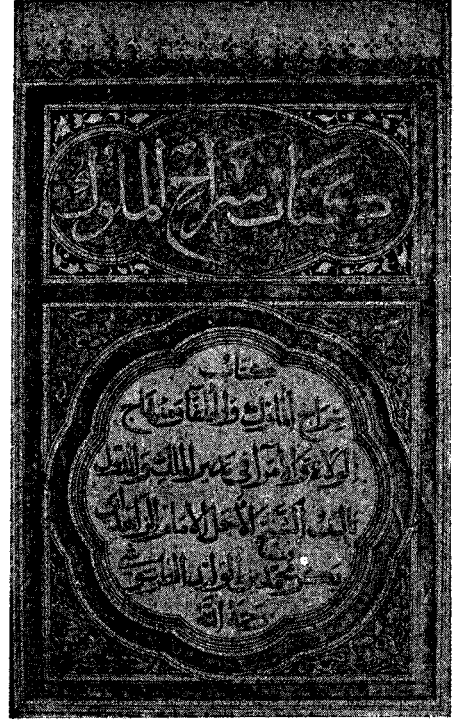 كتاب سراج الملوك
كتاب
سراج الملوك والخلفاء ومنهاج
الولاة والأمراء في
تأليف الشيخ الأجل الإمام الزاهد أبي
بكر محمد بن الوليد الطرطوشي
رحمه الله